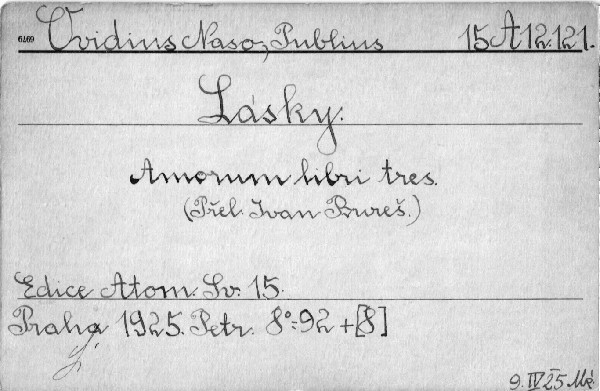 Ovidius Naso, Publius 15 A 12.121.
Lásky.
Amorum libri tres.
(Přel. Ivan Bureš.)
Edice Atom. Sv. 15.
Praha 1925. Petr. 8°-92 + [8]
9. IV 25